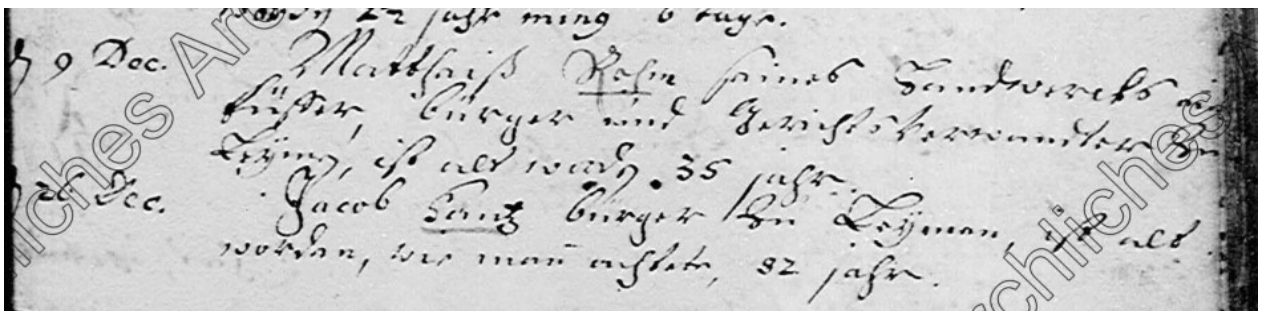 22 jahr minq 6 tage.
9 Dec. Matthaiß Rohm seines Handwercks ein
Küffer, bürger und Gerichtsverwandter zu
Leymen, ist alt word. 35 jahr.
26 Dec. Jacob Hantz bürger zu Leyman, ist alt
worden, wie man achtete, 82 jahr.
Archliches